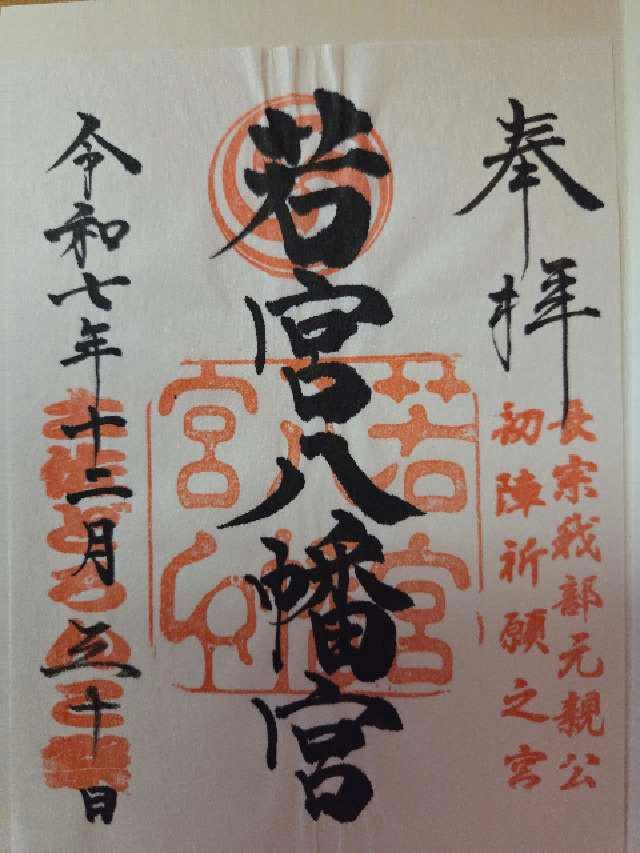 奉拝
長宗我部元親公
初陣祈願之宮
若宮八幡宮
若宮八幡宮
令和七年十二月三十日